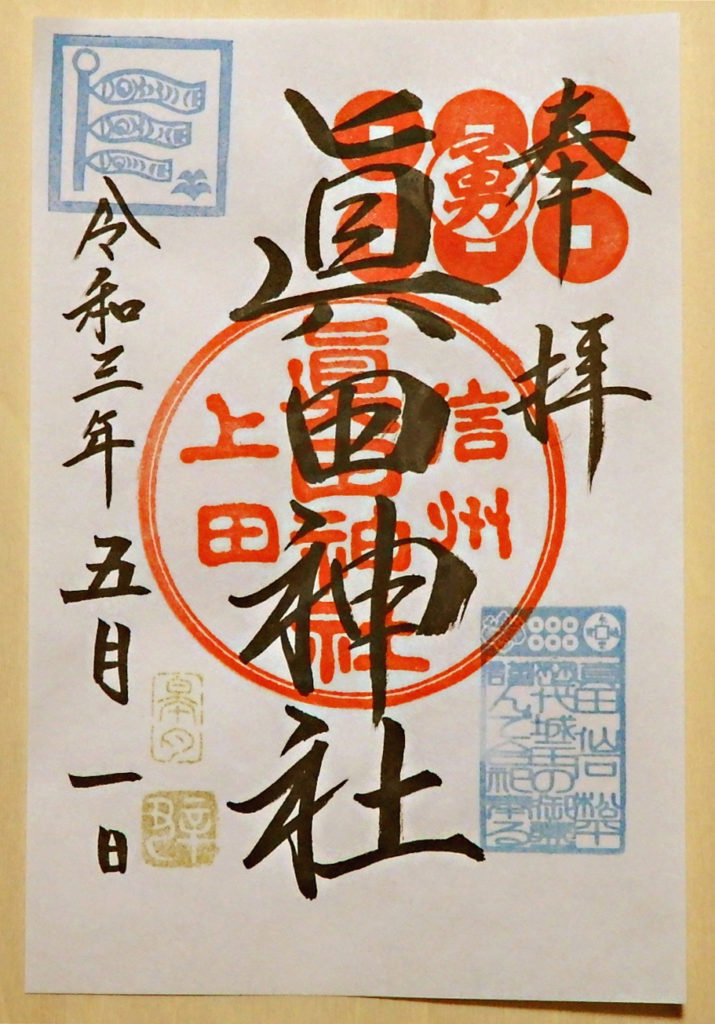 奉拝
勇
眞田神社
信州
眞田神社
上田
令和三年五月一日
皐月